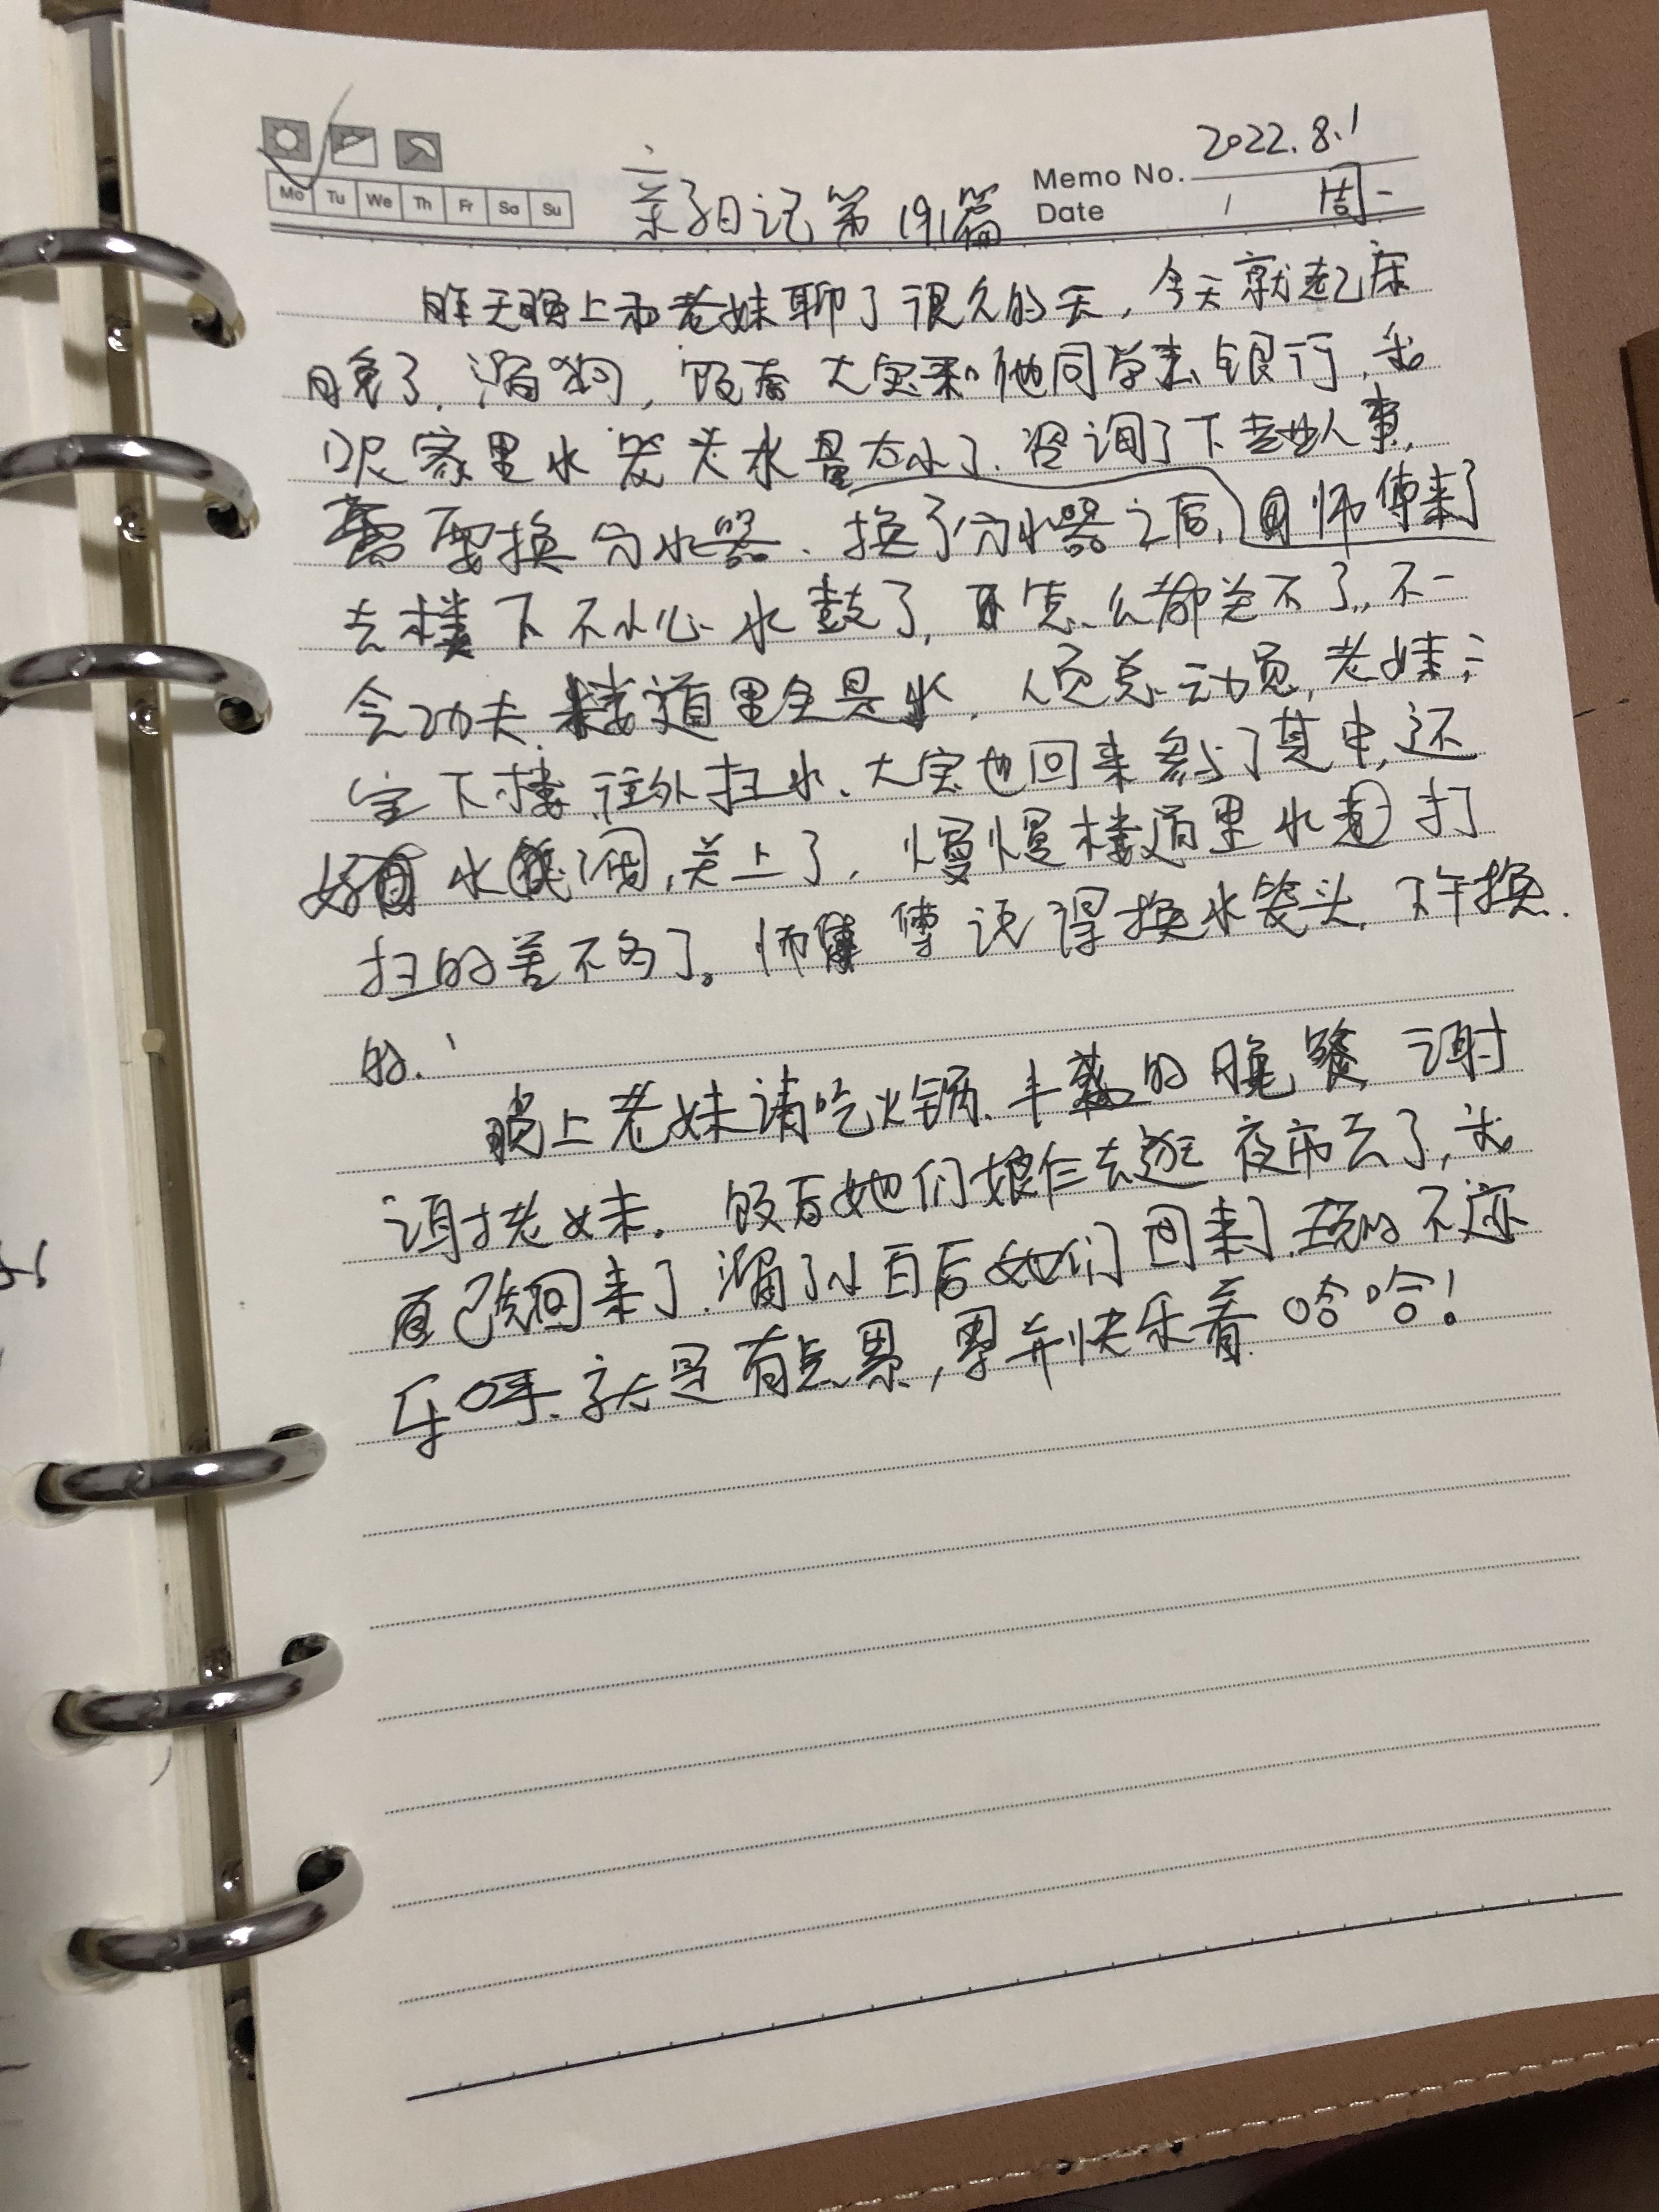 2022.8.1
Memo No.
Mo Tu We Th Fr Sa Su
亲子日记第191篇
Date 1 周一
昨天晚上和老妹聊了很久的天，今天就起床
晚了．溜狗，饭后大宝和他同学去银行，我
家里水笼头水量太小了．咨询了下
需要换分水器、换了分水器之后， 师傅来了
去楼下不小心水鼓了，怎么都关不了，不一
会功夫，楼道里全是水．人员总动员，老妹，
宝下楼，往外扫水．大宝也回来参与了其中，还
好 水阀，关上了．慢慢楼道里水 打
扫的差不多了。师傅说得换水笼头，下午换．
的．
晚上老妹请吃火锅．丰盛的晚餐 谢
谢老妹．饭后她们娘仨去逛夜市去了，我
自己先回来了．溜了小白后她们回来，玩的不亦
乐呼．就是有点累，累并快乐着．哈哈！